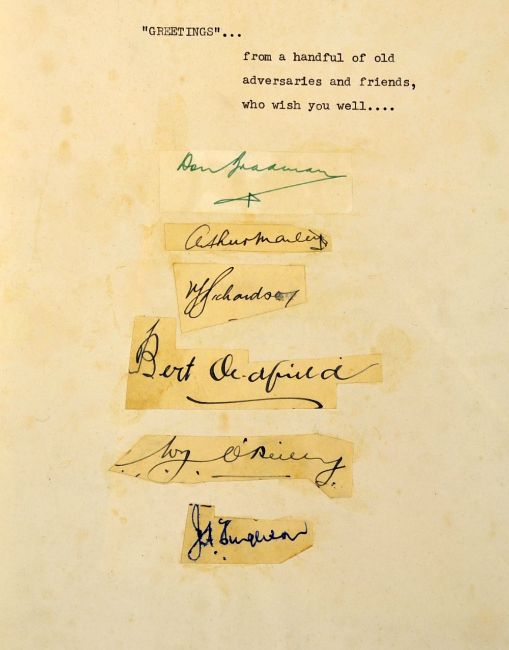 "GREETINGS"...
from a handful of old
adversaries and friends,
who wish you well....
Don Bradman
Arthur Mailey
V Y Richardson
Bert Oldfield
W. J. O'Reilly